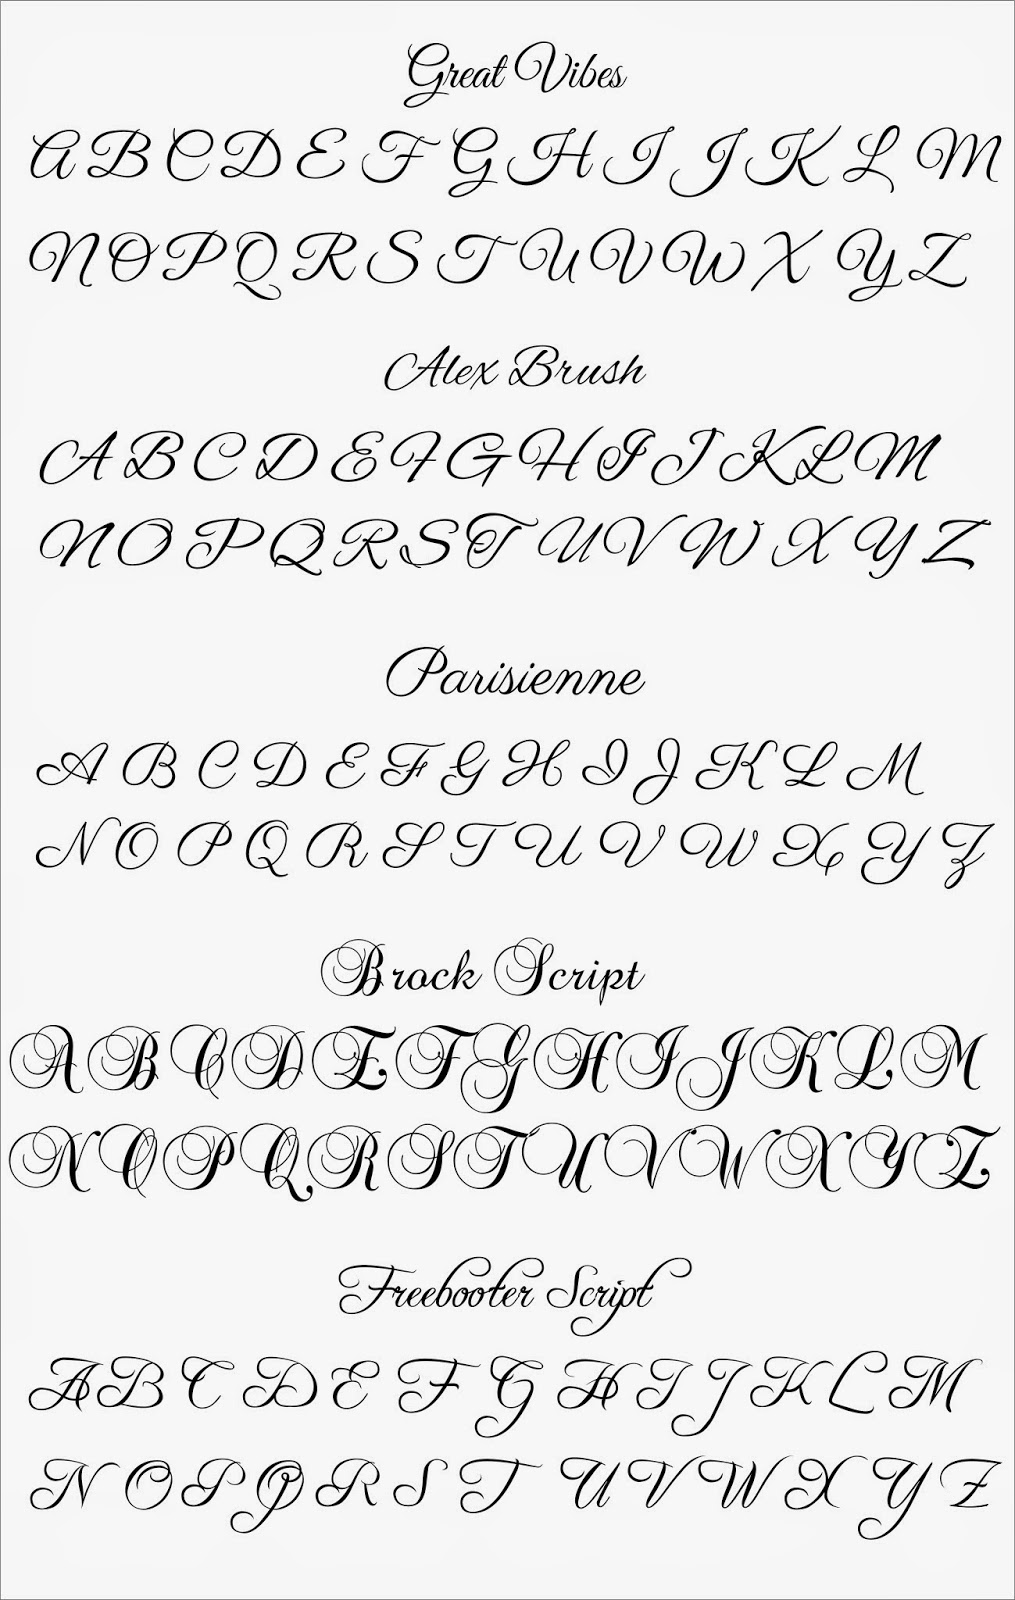 Great Vibes
A B C D E F G H I J K L M
N O P Q R S T U V W X Y Z
Alex Brush
A B C D E F G H I J K L M
N O P Q R S T U V W X Y Z
Parisienne
A B C D E F G H I J K L M
N O P Q R S T U V W X Y Z
Brock Script
A B C D E F G H I J K L M
N O P Q R S T U V W X Y Z
Freebooter Script
A B C D E F G H I J K L M
N O P Q R S T U V W X Y Z